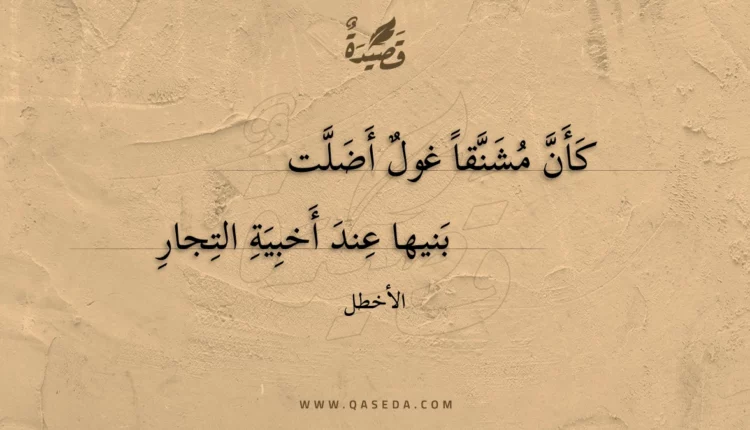 قَصِيدَةٌ
كَأَنَّ مُشَنَّقاً غولٌ أَضَلَّت
بَنيها عِندَ أَخبِيَةِ التِجارِ
الأخطل
WWW.QASEDA.COM